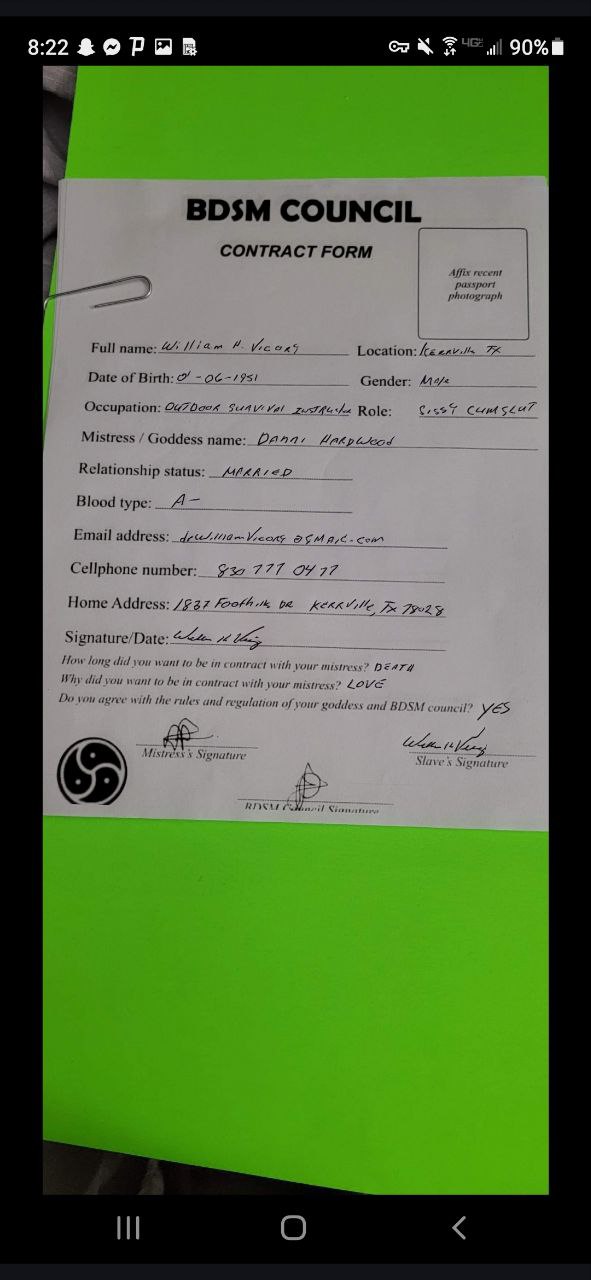 8:22
4G
90%
BDSM COUNCIL
CONTRACT FORM
Affix recent
passport
photograph
Full name: [redacted] Location: [redacted]
Date of Birth: [redacted] Gender: Male
Occupation: [redacted] Role: SISSY CUMSLUT
Mistress / Goddess name: [redacted]
Relationship status: MARRIED
Blood type: [redacted]
Email address: [redacted]
Cellphone number: [redacted]
Home Address: [redacted]
Signature/Date: [redacted]
How long did you want to be in contract with your mistress? DEATH
Why did you want to be in contract with your mistress? LOVE
Do you agree with the rules and regulation of your goddess and BDSM council? YES
Mistress's Signature
Slave's Signature
BDSM Council Signature